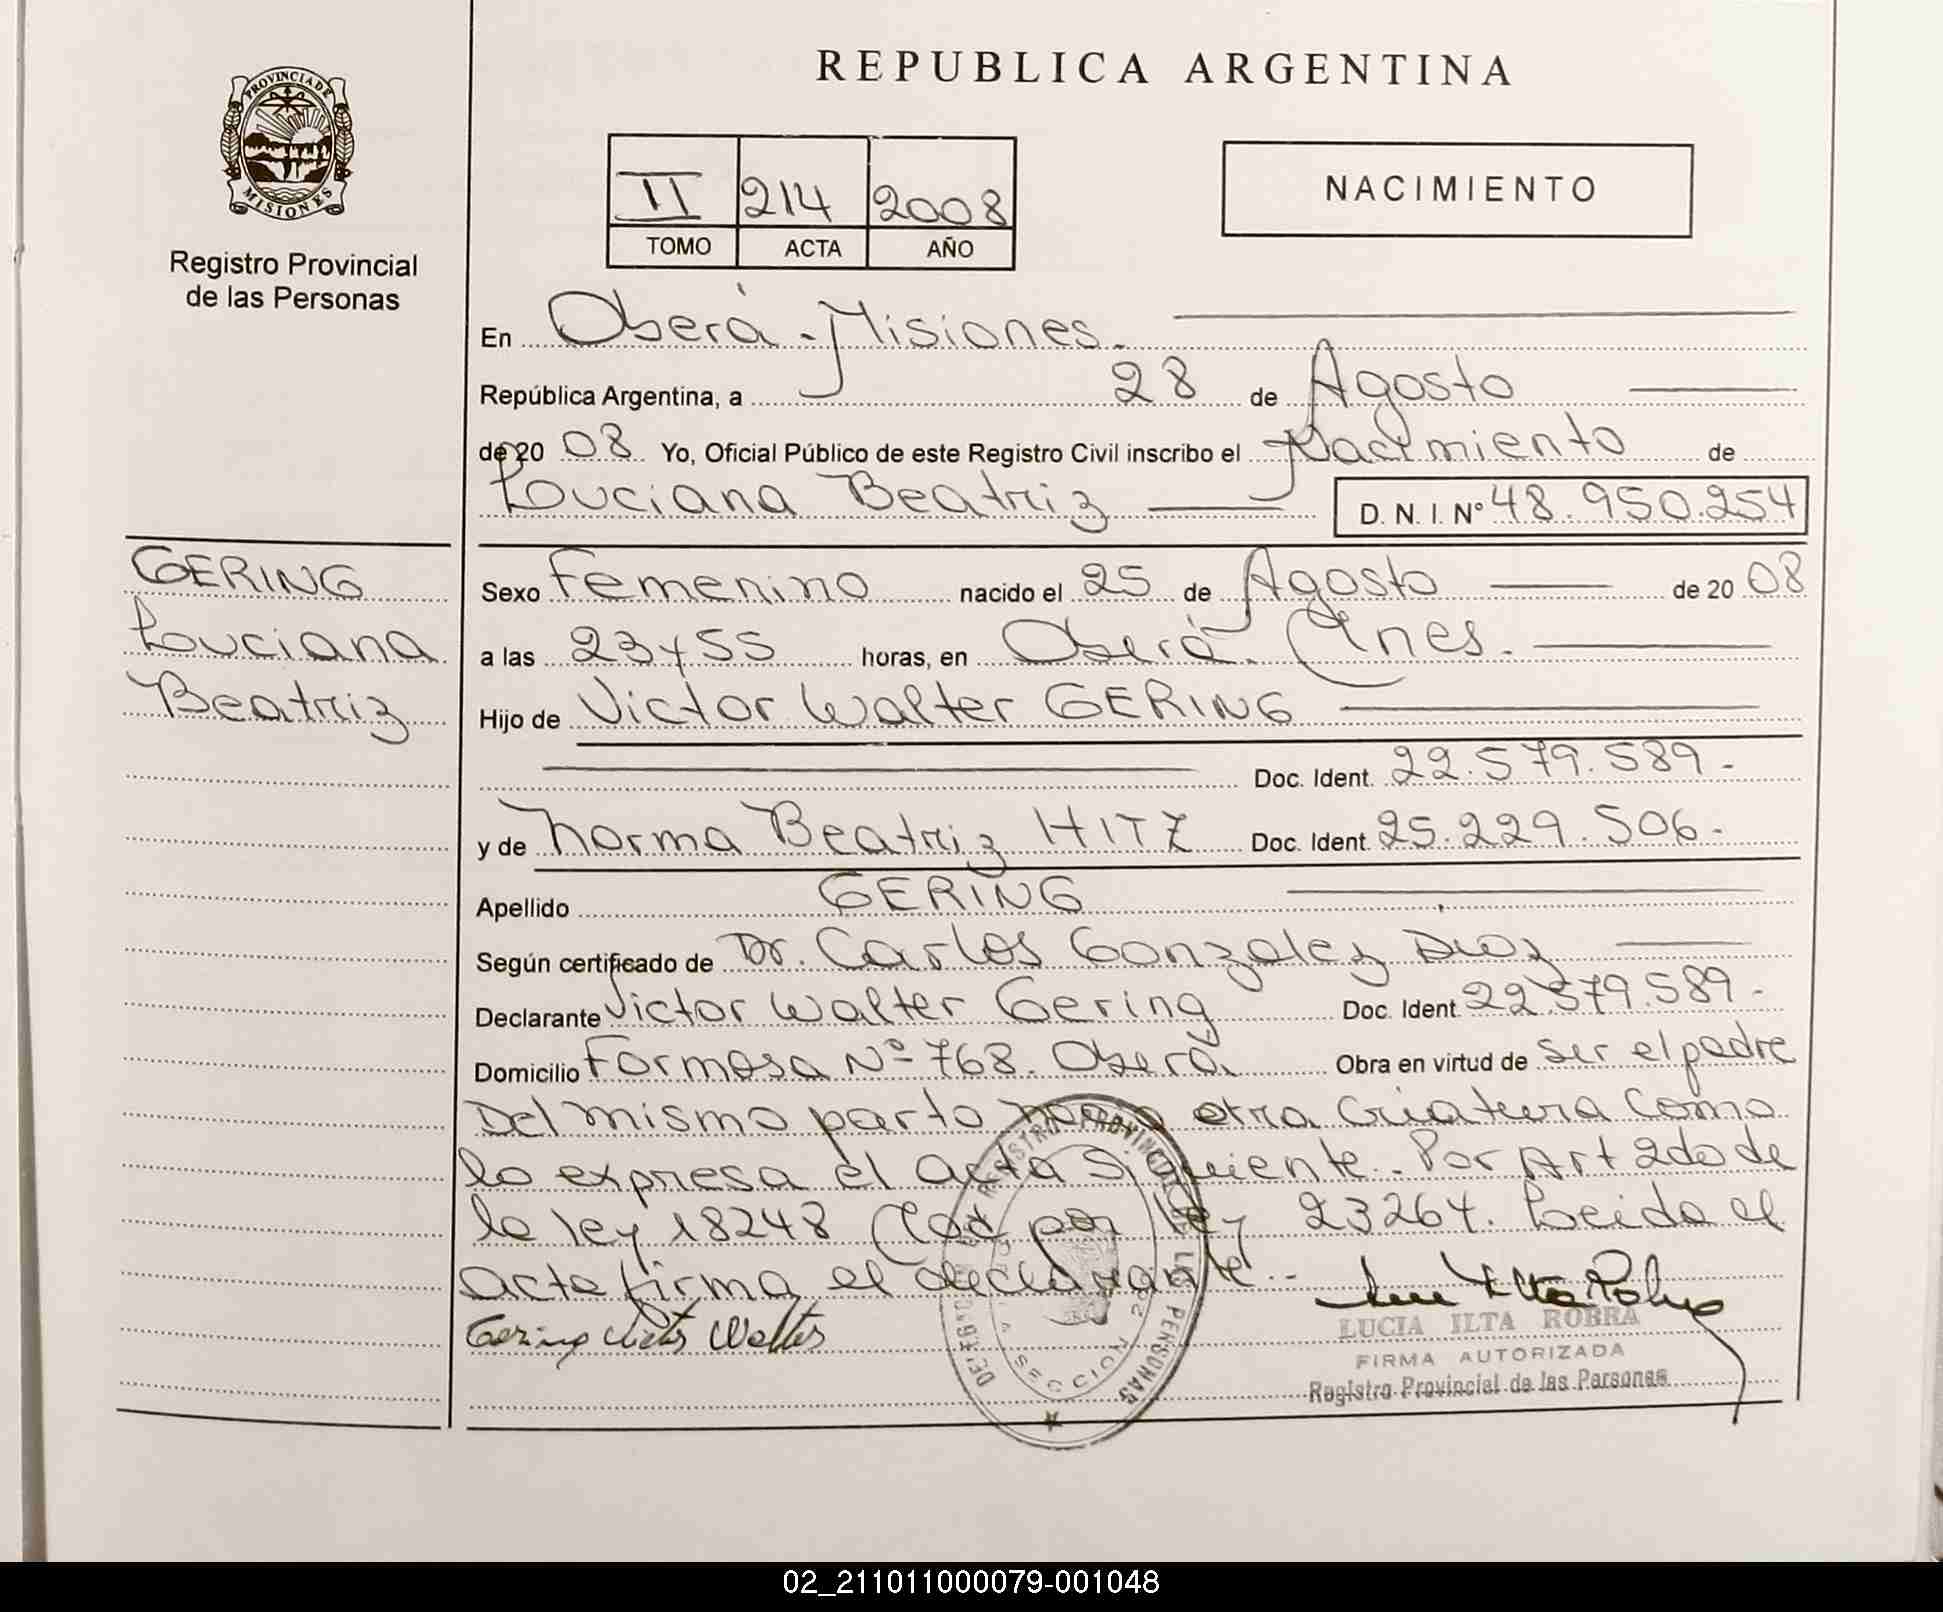 REPUBLICA ARGENTINA
PROVINCIA DE
MISIONES
Registro Provincial
de las Personas
II 214 2008
TOMO ACTA AÑO
NACIMIENTO
En Oberá - Misiones.
República Argentina, a 28 de Agosto
de 20 08 Yo, Oficial Público de este Registro Civil inscribo el Nacimiento de
Louciana Beatriz D. N. I. Nº 48.950.254
GERING
Louciana
Beatriz
Sexo Femenino nacido el 25 de Agosto de 20 08
a las 23 y 55 horas, en Oberá. Mnes.
Hijo de Victor Walter GERING
Doc. Ident. 22.579.589.-
y de Norma Beatriz HITZ Doc. Ident. 25.229.506.-
Apellido GERING
Según certificado de Dr. Carlos Gonzalez Dioz
Declarante Victor Walter Gering Doc. Ident. 22.579.589.-
Domicilio Formosa Nº 768. Oberá. Obra en virtud de ser el padre
Del mismo parto otra criatura como
lo expresa el acta siguiente. Por Art 2do de
la ley 18248 por ley 23264. Leida el
acta firma el declarante.-
Gering Victor Walter
LUCIA ILTA ROBRA
FIRMA AUTORIZADA
Registro Provincial de las Personas
REGISTRO PROVINCIAL DE LAS PERSONAS
SECCION
02_211011000079-001048